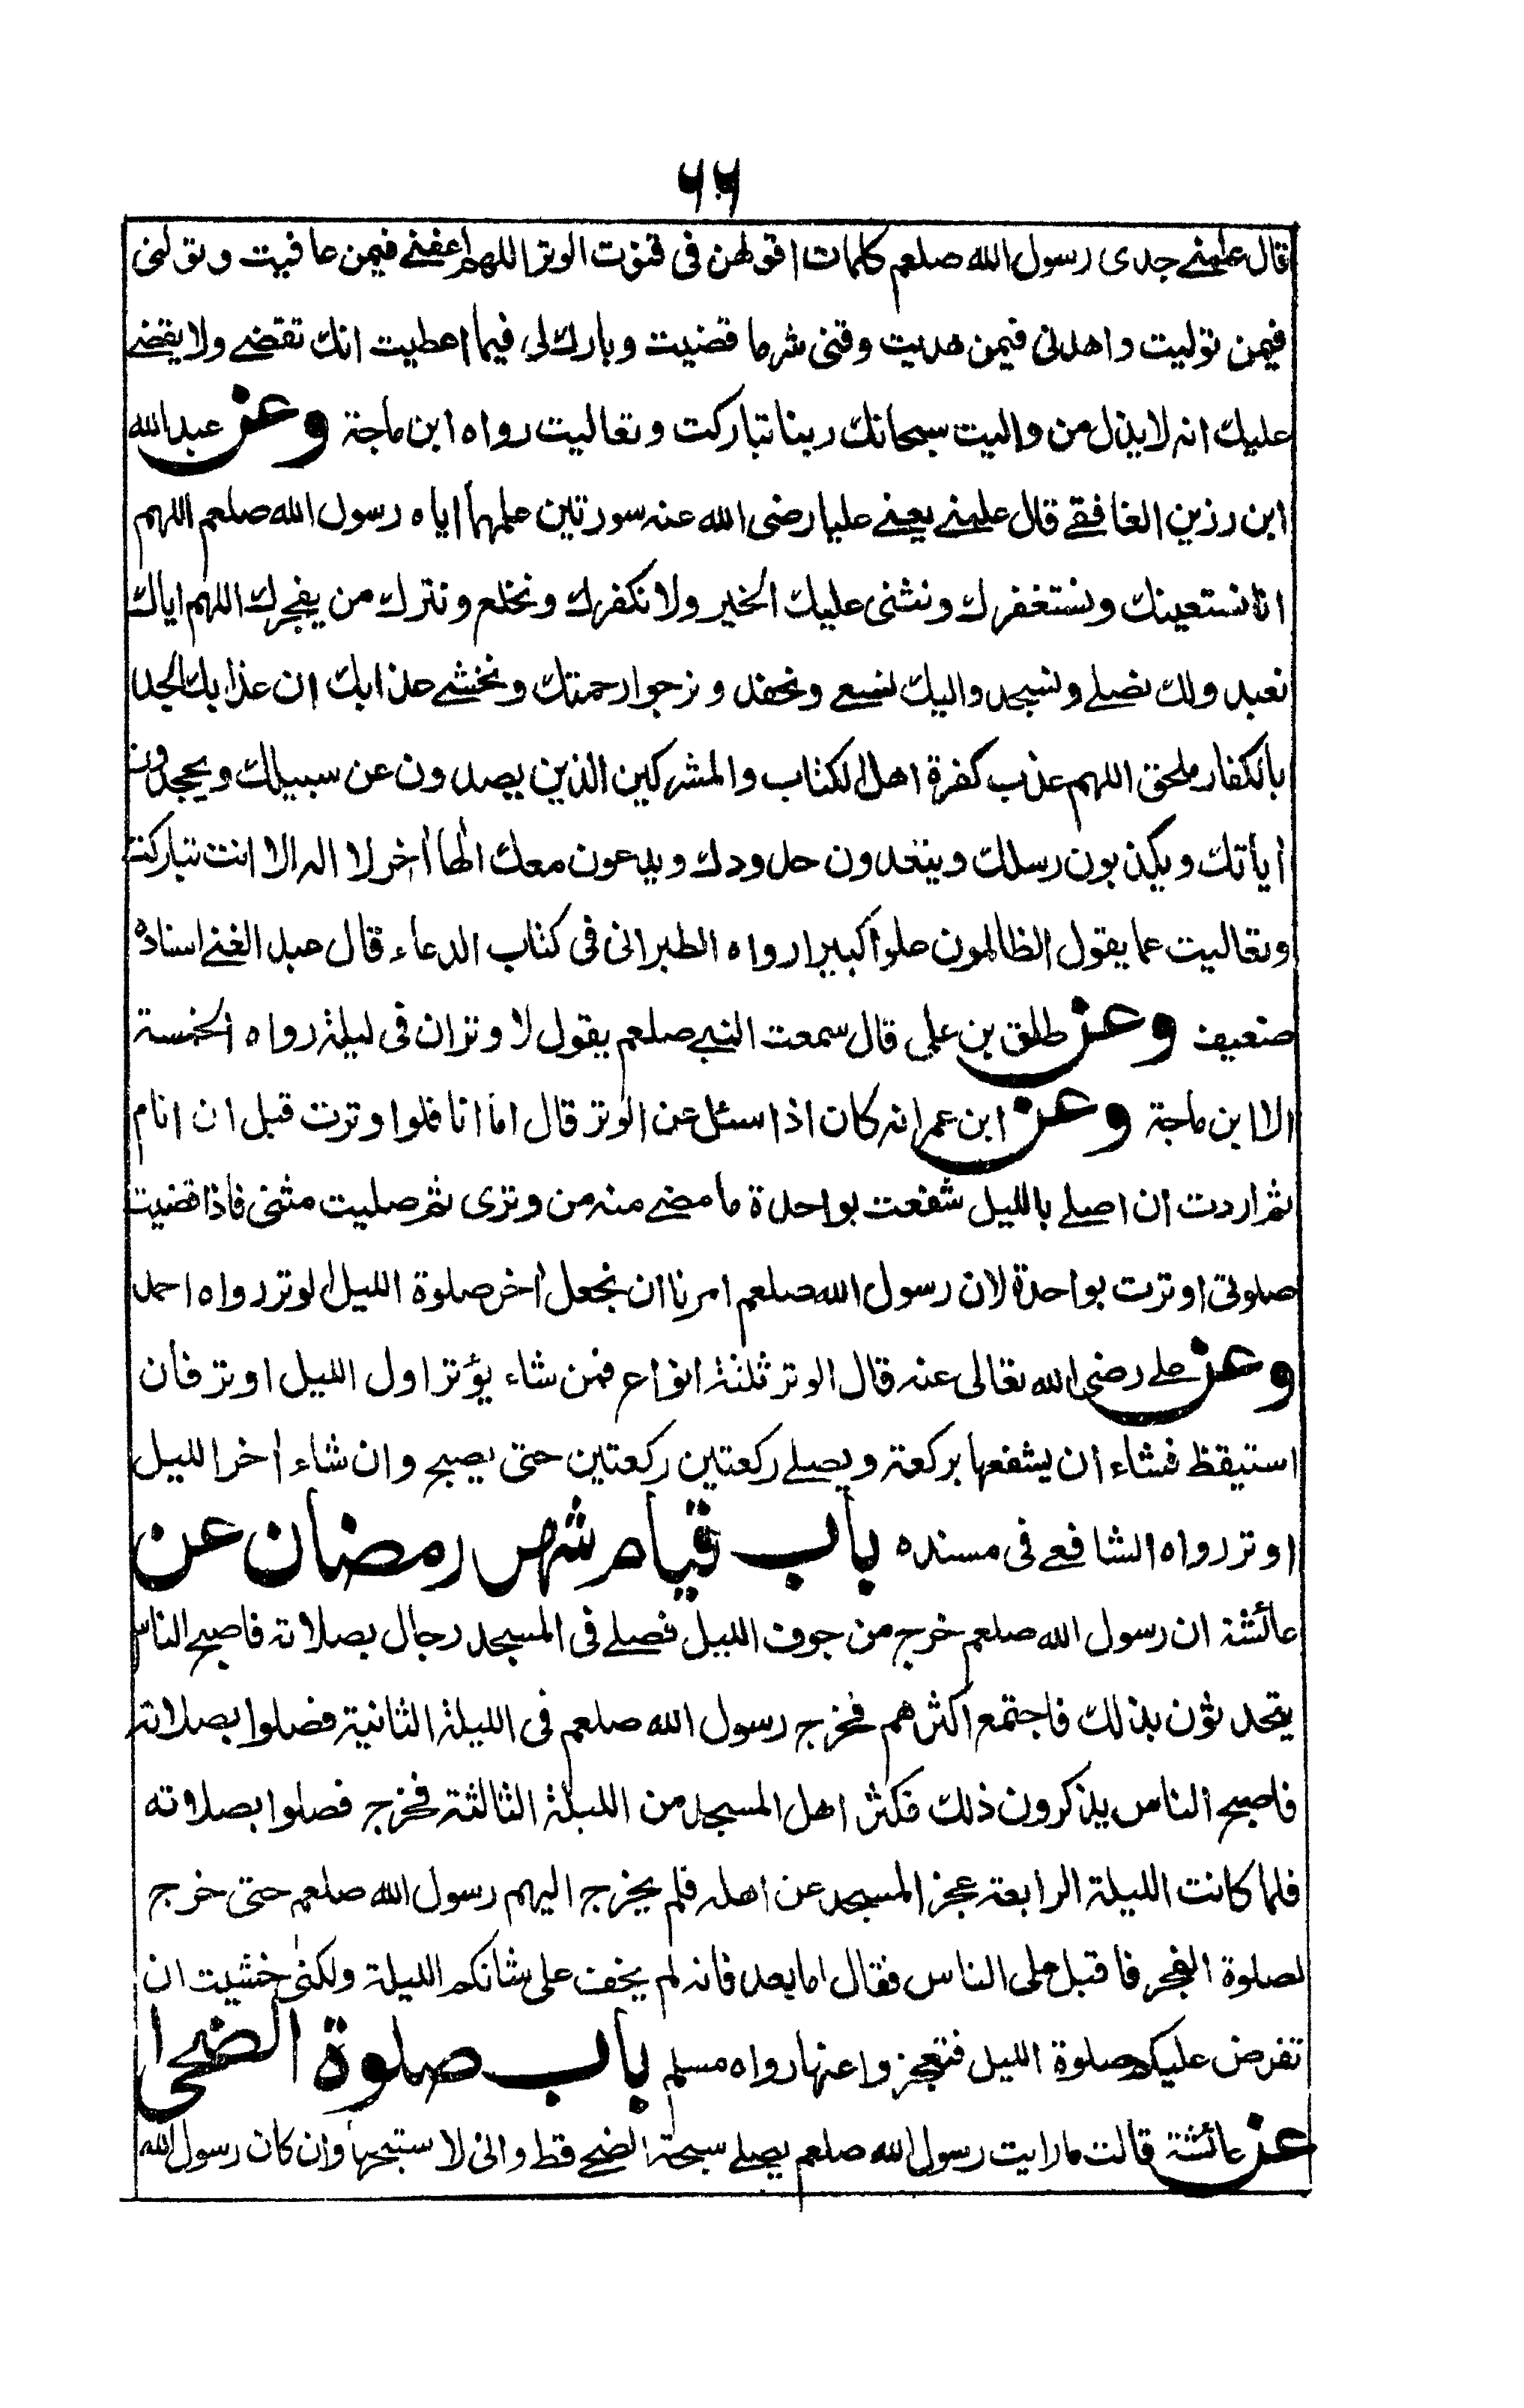 ۶۶
قال علمنے جدی رسول الله صلعم كلمات اقولهن فی قنوت الوتر اللهم اعفنے فيمن عافيت وتولنی
فيمن توليت واهدنی فيمن هديت وقنی شر ما قضيت وبارك لی فيما اعطيت انك تقضے ولا يقضے
عليك انه لا يذل من واليت سبحانك ربنا تباركت وتعاليت رواه ابن ماجة وعن عبد الله
ابن رزين الغافقے قال علمنے يعنے عليا رضی الله عنه سورتين علمهما اياه رسول الله صلعم اللهم
انا نستعينك ونستغفرك ونثنی عليك الخير ولا نكفرك ونخلع ونترك من يفجرك اللهم اياك
نعبد ولك نصلے ونسجد واليك نسعے ونحفد ونرجوا رحمتك ونخشے عذابك ان عذابك الجد
بالكفار ملحق اللهم عذب كفرة اهل الكتاب والمشركين الذين يصدون عن سبيلك ويجحدون
اٰياتك ويكذبون رسلك ويتعدون حدودك ويدعون معك الٰها اٰخر لا اله الا انت تباركت
وتعاليت عما يقول الظالمون علوا كبيرا رواه الطبرانی فی كتاب الدعاء قال عبد الغنے اسناده
ضعيف وعن طلق بن علی قال سمعت النبے صلعم يقول لا وتران فی ليلة رواه الخمسة
الا ابن ماجة وعن ابن عمر انه كان اذا سئل عن الوتر قال اما انا فلو اوترت قبل ان انام
ثم اردت ان اصلے بالليل شفعت بواحدة ما مضے منه من وتری ثم صليت مثنی فاذا قضيت
صلوتی اوترت بواحدة لان رسول الله صلعم امرنا ان نجعل اٰخر صلوة الليل الوتر رواه احمد
وعن علے رضی الله تعالی عنه قال الوتر ثلثة انواع فمن شاء يؤتر اول الليل اوتر فان
استيقظ فشاء ان يشفعها بركعة ويصلے ركعتين ركعتين حتی يصبح وان شاء اٰخر الليل
اوتر رواه الشافعے فی مسنده باب قيام شهر رمضان عن
عائشة ان رسول الله صلعم خرج من جوف الليل فصلے فی المسجد رجال بصلاته فاصبح الناس
يتحدثون بذلك فاجتمع اكثرهم فخرج رسول الله صلعم فی الليلة الثانية فصلوا بصلاته
فاصبح الناس يذكرون ذلك فكثر اهل المسجد من الليلة الثالثة فخرج فصلوا بصلاته
فلما كانت الليلة الرابعة عجز المسجد عن اهله فلم يخرج اليهم رسول الله صلعم حتی خرج
لصلوة الفجر فاقبل علی الناس فقال اما بعد فانه لم يخف علی شانكم الليلة ولكنی خشيت ان
تفرض عليكم صلوة الليل فتعجزوا عنها رواه مسلم باب صلوة الضحی
عن عائشة قالت ما رايت رسول الله صلعم يصلے سبحة الضحے قط وانی لا ستبحها وان كان رسول الله